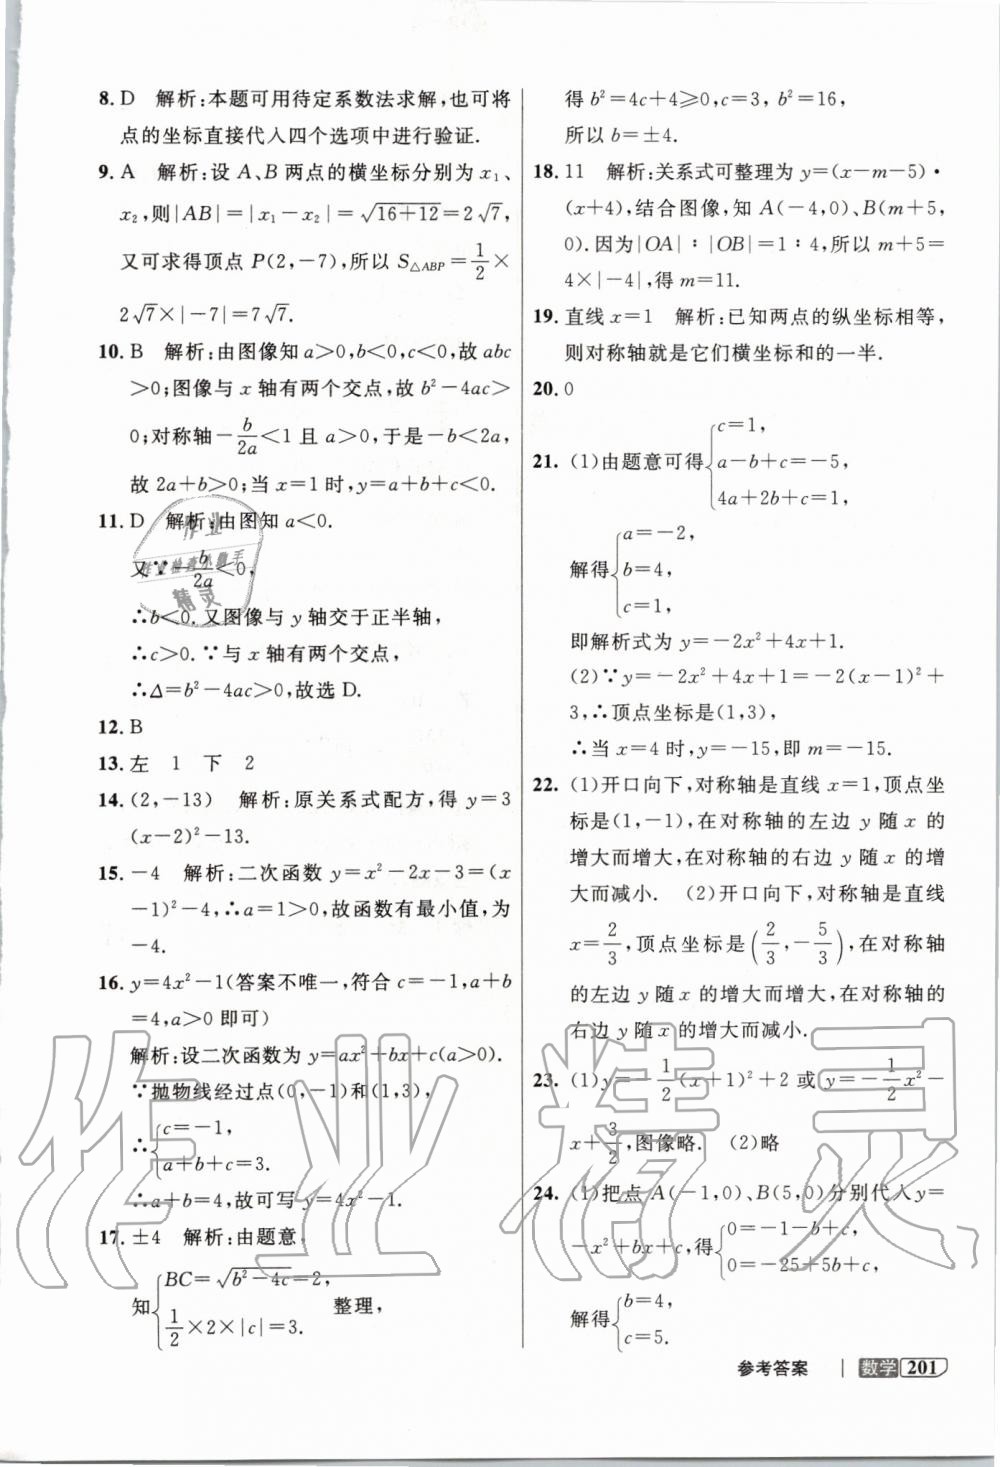 8. D　解析:本题可用待定系数法求解,也可将
点的坐标直接代入四个选项中进行验证.
9. A　解析:设 A、B 两点的横坐标分别为 x₁、
x₂,则|AB|=|x₁-x₂|=√(16+12)=2√7,
又可求得顶点 P(2,-7),所以 S△ABP=1/2×
2√7×|-7|=7√7.
10. B　解析:由图像知 a>0,b<0,c<0,故 abc
>0;图像与 x 轴有两个交点,故 b²-4ac>
0;对称轴-b/2a<1 且 a>0,于是-b<2a,
故 2a+b>0;当 x=1 时,y=a+b+c<0.
11. D　解析:由图知 a<0.
又∵-b/2a<0,
∴b<0.又图像与 y 轴交于正半轴,
∴c>0.∵与 x 轴有两个交点,
∴Δ=b²-4ac>0,故选 D.
12. B
13. 左　1　下　2
14. (2,-13)　解析:原关系式配方,得 y=3
(x-2)²-13.
15. -4　解析:二次函数 y=x²-2x-3=(x
-1)²-4,∴a=1>0,故函数有最小值,为
-4.
16. y=4x²-1(答案不唯一,符合 c=-1,a+b
=4,a>0 即可)
解析:设二次函数为 y=ax²+bx+c(a>0).
∵抛物线经过点(0,-1)和(1,3),
∴{c=-1,
a+b+c=3.
∴a+b=4,故可写 y=4x²-1.
17. ±4　解析:由题意,
知{BC=√(b²-4c)=2,
1/2×2×|c|=3. 整理,
得 b²=4c+4≥0,c=3, b²=16,
所以 b=±4.
18. 11　解析:关系式可整理为 y=(x-m-5)·
(x+4),结合图像,知 A(-4,0)、B(m+5,
0).因为|OA|∶|OB|=1∶4,所以 m+5=
4×|-4|,得 m=11.
19. 直线 x=1　解析:已知两点的纵坐标相等,
则对称轴就是它们横坐标和的一半.
20. 0
21. (1)由题意可得{c=1,
a-b+c=-5,
4a+2b+c=1,
解得{a=-2,
b=4,
c=1,
即解析式为 y=-2x²+4x+1.
(2)∵y=-2x²+4x+1=-2(x-1)²+
3,∴顶点坐标是(1,3),
∴当 x=4 时,y=-15,即 m=-15.
22. (1)开口向下,对称轴是直线 x=1,顶点坐
标是(1,-1),在对称轴的左边 y 随 x 的
增大而增大,在对称轴的右边 y 随 x 的增
大而减小.　(2)开口向下,对称轴是直线
x=2/3,顶点坐标是(2/3,-5/3),在对称轴
的左边 y 随 x 的增大而增大,在对称轴的
右边 y 随 x 的增大而减小.
23. (1)y=-1/2(x+1)²+2 或 y=-1/2x²-
x+3/2,图像略.　(2)略
24. (1)把点 A(-1,0)、B(5,0)分别代入 y=
-x²+bx+c,得{0=-1-b+c,
0=-25+5b+c,
解得{b=4,
c=5.
参考答案　|　数学 201
作业
精灵
作业精灵